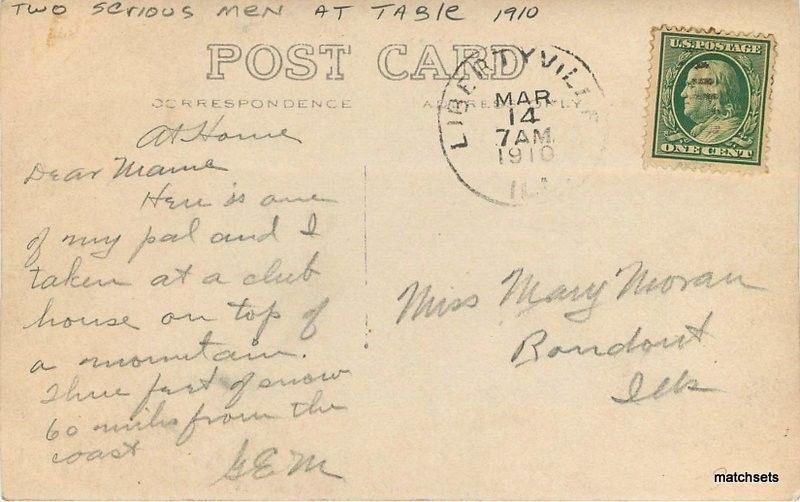 TWO SERIOUS MEN AT TABLE 1910
POST CARD
CORRESPONDENCE
ADDRESS ONLY
LIBERTYVILLE
MAR
14
7AM
1910
ILL
U.S. POSTAGE
ONE CENT
At Home
Dear Mame
Here is one
of my pal and I
taken at a club
house on top of
a mountain.
Three feet of snow
60 miles from the
coast
G.E.M
Miss Mary Moran
Rondout
Ills
matchsets